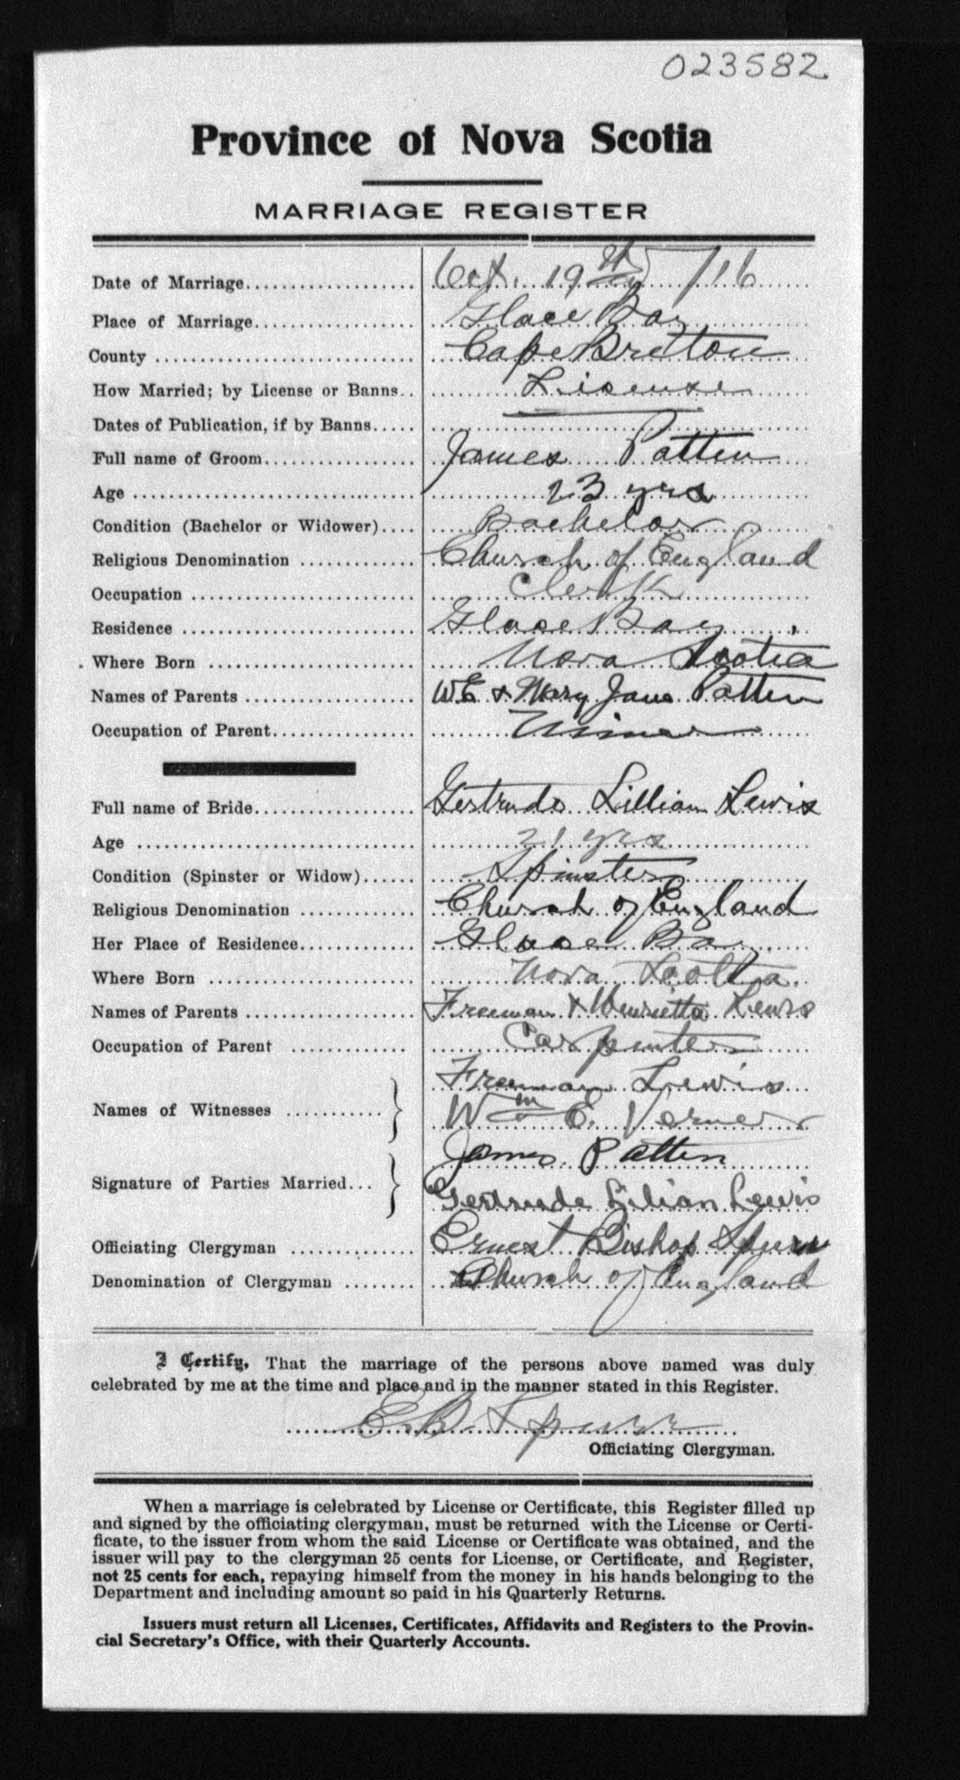 023582
Province of Nova Scotia
MARRIAGE REGISTER
Date of Marriage Oct. 19th /16
Place of Marriage Glace Bay
County Cape Breton
How Married; by License or Banns Lisense
Dates of Publication, if by Banns
Full name of Groom James Patten
Age 23 yrs
Condition (Bachelor or Widower) Bachelor
Religious Denomination Church of England
Occupation Clerk
Residence Glace Bay
Where Born Nova Scotia
Names of Parents W E & Mary Jane Patten
Occupation of Parent Miner
Full name of Bride Gertrude Lillian Lewis
Age 21 yrs
Condition (Spinster or Widow) Spinster
Religious Denomination Church of England
Her Place of Residence Glace Bay
Where Born Nova Scotia
Names of Parents Freeman & Henrietta Lewis
Occupation of Parent Carpenter
Freeman Lewis
Names of Witnesses
Wm E. Verner
James Patten
Signature of Parties Married
Gertrude Lilian Lewis
Officiating Clergyman Ernest Bishop Spurr
Denomination of Clergyman Church of England
I Certify, That the marriage of the persons above named was duly
celebrated by me at the time and place and in the manner stated in this Register.
E.B. Spurr
Officiating Clergyman.
When a marriage is celebrated by License or Certificate, this Register filled up
and signed by the officiating clergyman, must be returned with the License or Certi-
ficate, to the issuer from whom the said License or Certificate was obtained, and the
issuer will pay to the clergyman 25 cents for License, or Certificate, and Register,
not 25 cents for each, repaying himself from the money in his hands belonging to the
Department and including amount so paid in his Quarterly Returns.
Issuers must return all Licenses, Certificates, Affidavits and Registers to the Provin-
cial Secretary's Office, with their Quarterly Accounts.